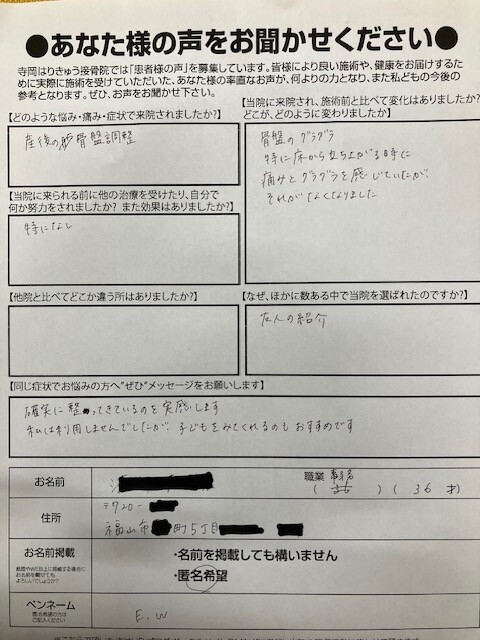 ●あなた様の声をお聞かせください●
寺岡はりきゅう接骨院では「患者様の声」を募集しています。皆様により良い施術や、健康をお届けするた
めに実際に施術を受けていただいた、あなた様の率直なお声が、何よりの力となり、また私どもの今後の
参考となります。ぜひ、お声をお聞かせ下さい。
【どのような悩み・痛み・症状で来院されましたか?】
産後の骨盤調整
【当院に来院され、施術前と比べて変化はありましたか?
どこが、どのように変わりましたか】
骨盤のグラグラ
特に床から立ち上がる時に
痛みとグラグラを感じていたが、
それがなくなりました
【当院に来られる前に他の治療を受けたり、自分で
何か努力をされましたか? また効果はありましたか?】
特になし
【他院と比べてどこか違う所はありましたか?】
【なぜ、ほかに数ある中で当院を選ばれたのですか?】
友人の紹介
【同じ症状でお悩みの方へ"ぜひ"メッセージをお願いします】
確実に整ってきているのを実感します
私は利用しませんでしたが、子どもをみてくれるのもおすすめです
お名前
職業 事務
( ) ( 36 才)
住所
〒720-
福山市 町5丁目
お名前掲載
・名前を掲載しても構いません
・匿名希望
ペンネーム
E.W